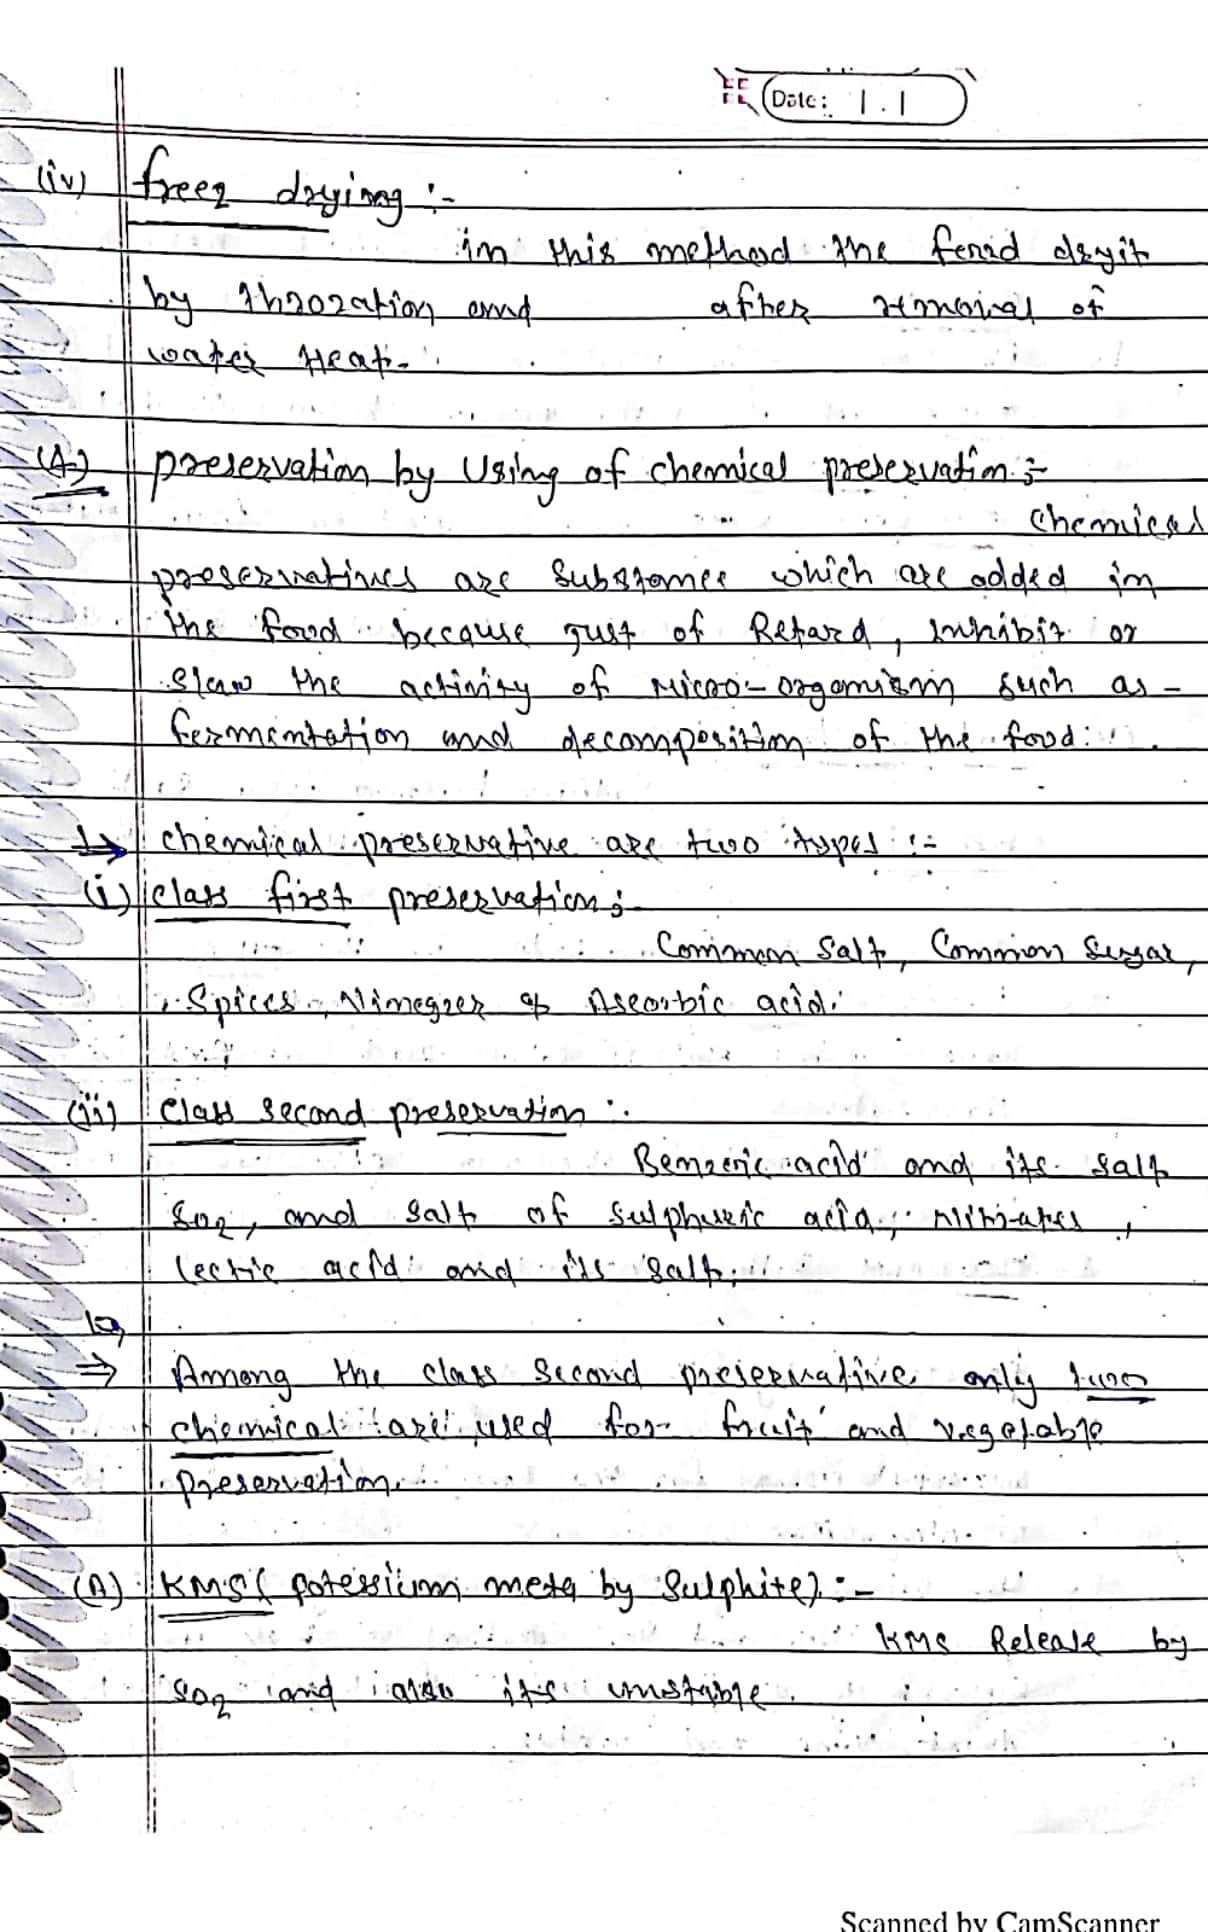 Date: 1.1
(iv) freez dryinng :-
in this method the food dryit
by and after removal of
water Heat.
(4) preservation by Using of chemical preservation :-
Chemical
preservatives are Substances which are added in
the food because just of Retard, Inhibit or
slow the activity of Micro-organism such as -
fermentation and decomposition of the food.
→ chemical preservative are two types :-
(i) class first preservation :-
Common Salt, Common Sugar,
Spices, & Ascorbic acid.
(ii) Class second preservation :.
Benzoic acid and its salt
SO2, and salt of sulphuric acid,
lectic acid and its salt.
⇒ Among the class Second preservative only two
chemical are used for fruit and vegetable
preservation.
(A) KMS( potessium meta by Sulphite) :-
KMS Release by
SO2 and also its unstable.
Scanned by CamScanner